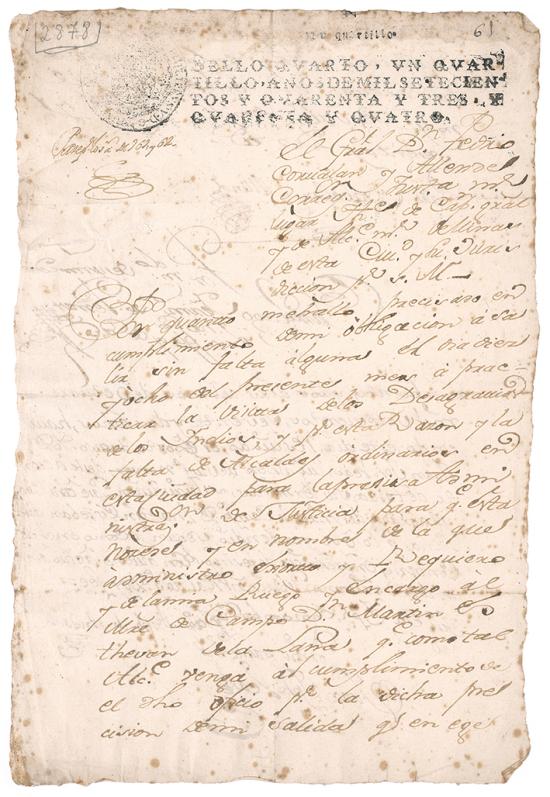 2878
un quartillo
61
SELLO QVARTO, VN QVAR-
TILLO, AÑOS DE MIL SETECIEN-
TOS Y QVARENTA Y TRES, Y
QVARENTA Y QVATRO.
El Gral Dn Pedro
Corvalan Allende
Correg. Justa mr
lugar
y de Alce mr de Minas
de esta Ciud y su Juris
dicion pr s. M.
Por quanto me hallo precisaro en
cumplimiento de mi obligacion á sa
lir sin falta alguna el dia dies
y ocho del presente mes á prac-
ticar la Visita de los Desagravios
de los Indios, y pr esta Razon y la
falta de Alcaldes ordinarios en
esta siudad para la presisa Admi
nistraon de Justicia para q esta
no sese, y en nombre de la que
administro exorto y Requiero
y de la mia Ruego y encargo al
Mre de Campo Dn Martin Es
thevan de la Lana qe como tal
Alce venga al cumplimiento de
el dho oficio pr la dicha pres
cision de mi Salida q en ege